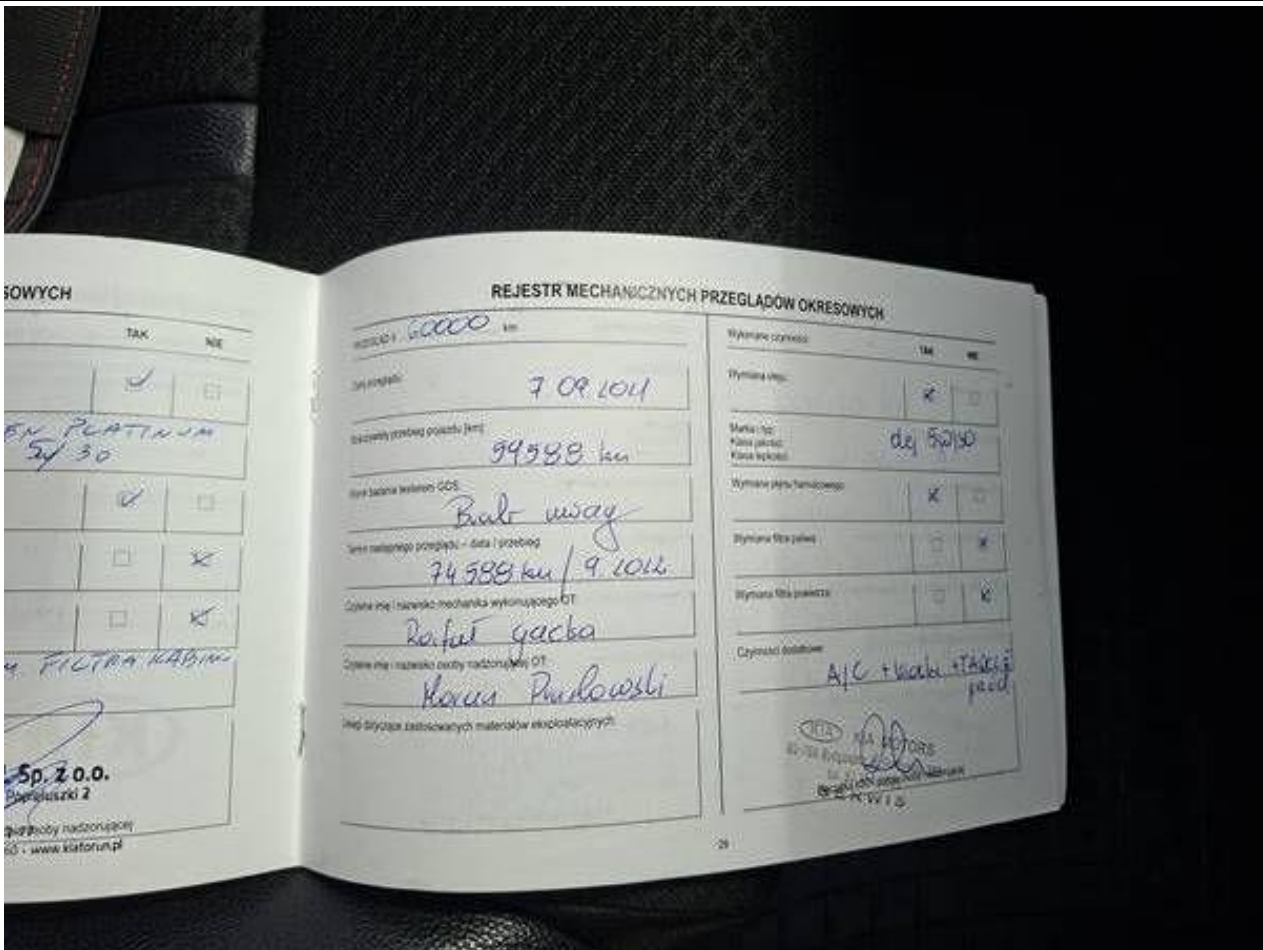 SOWYCH
TAK NIE
EN PLATINUM
5W30
M FILTRA KABINO
Sp. z o.o.
Popiełuszki 2
osoby nadzorującej
www.kiatorun.pl
REJESTR MECHANICZNYCH PRZEGLĄDÓW OKRESOWYCH
60000 km
Data przeglądu:
7 09 2011
Rzeczywisty przebieg pojazdu [km]:
59588 km
Wynik badania testerem GDS:
Brak uwag
Termin następnego przeglądu – data / przebieg:
74588 km / 9.2012
Czytelne imię i nazwisko mechanika wykonującego OT:
Rafał
Czytelne imię i nazwisko osoby nadzorującej OT:
Uwagi dotyczące zastosowanych materiałów eksploatacyjnych:
Wykonane czynności: TAK NIE
Wymiana oleju:
Marka i typ:
Klasa jakości:
Klasa lepkości:
olej 5W30
Wymiana płynu hamulcowego:
Wymiana filtra paliwa:
Wymiana filtra powietrza:
Czynności dodatkowe:
A/C +
KIA KIA MOTORS
29